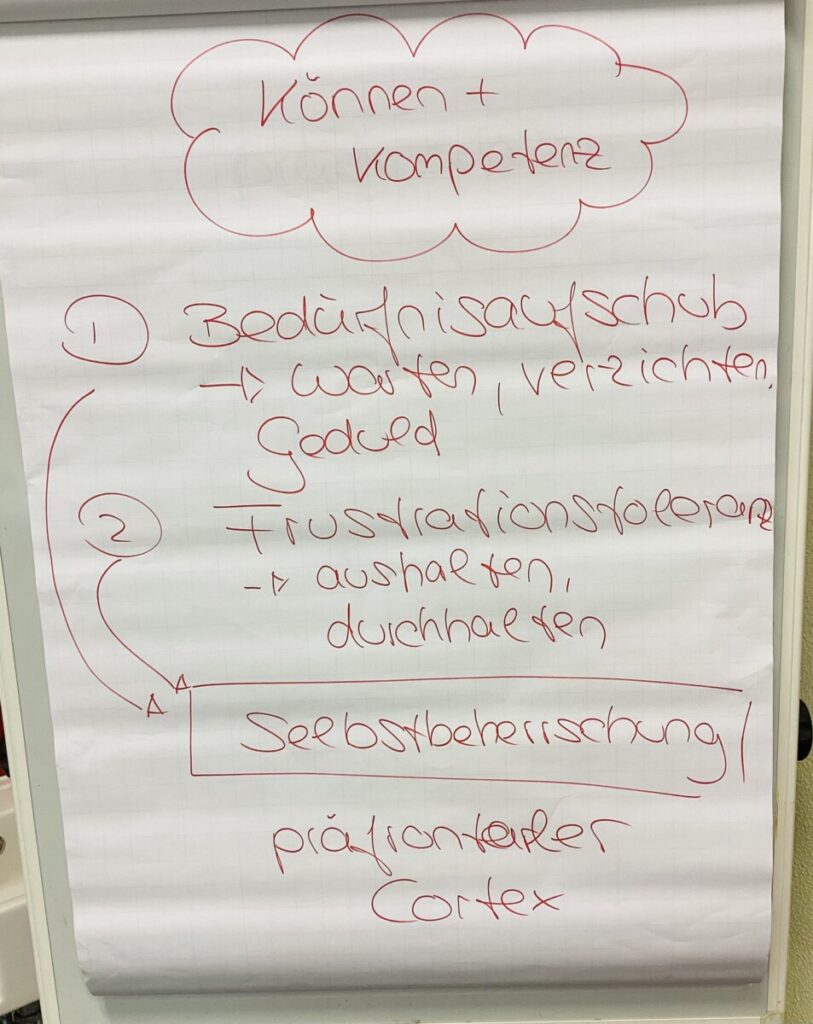 Können +
Kompetenz
1 Bedürfnisaufschub
→ warten, verzichten,
Geduld
2 Frustrationstoleranz
→ aushalten,
durchhalten
Selbstbeherrschung
präfrontaler
Cortex